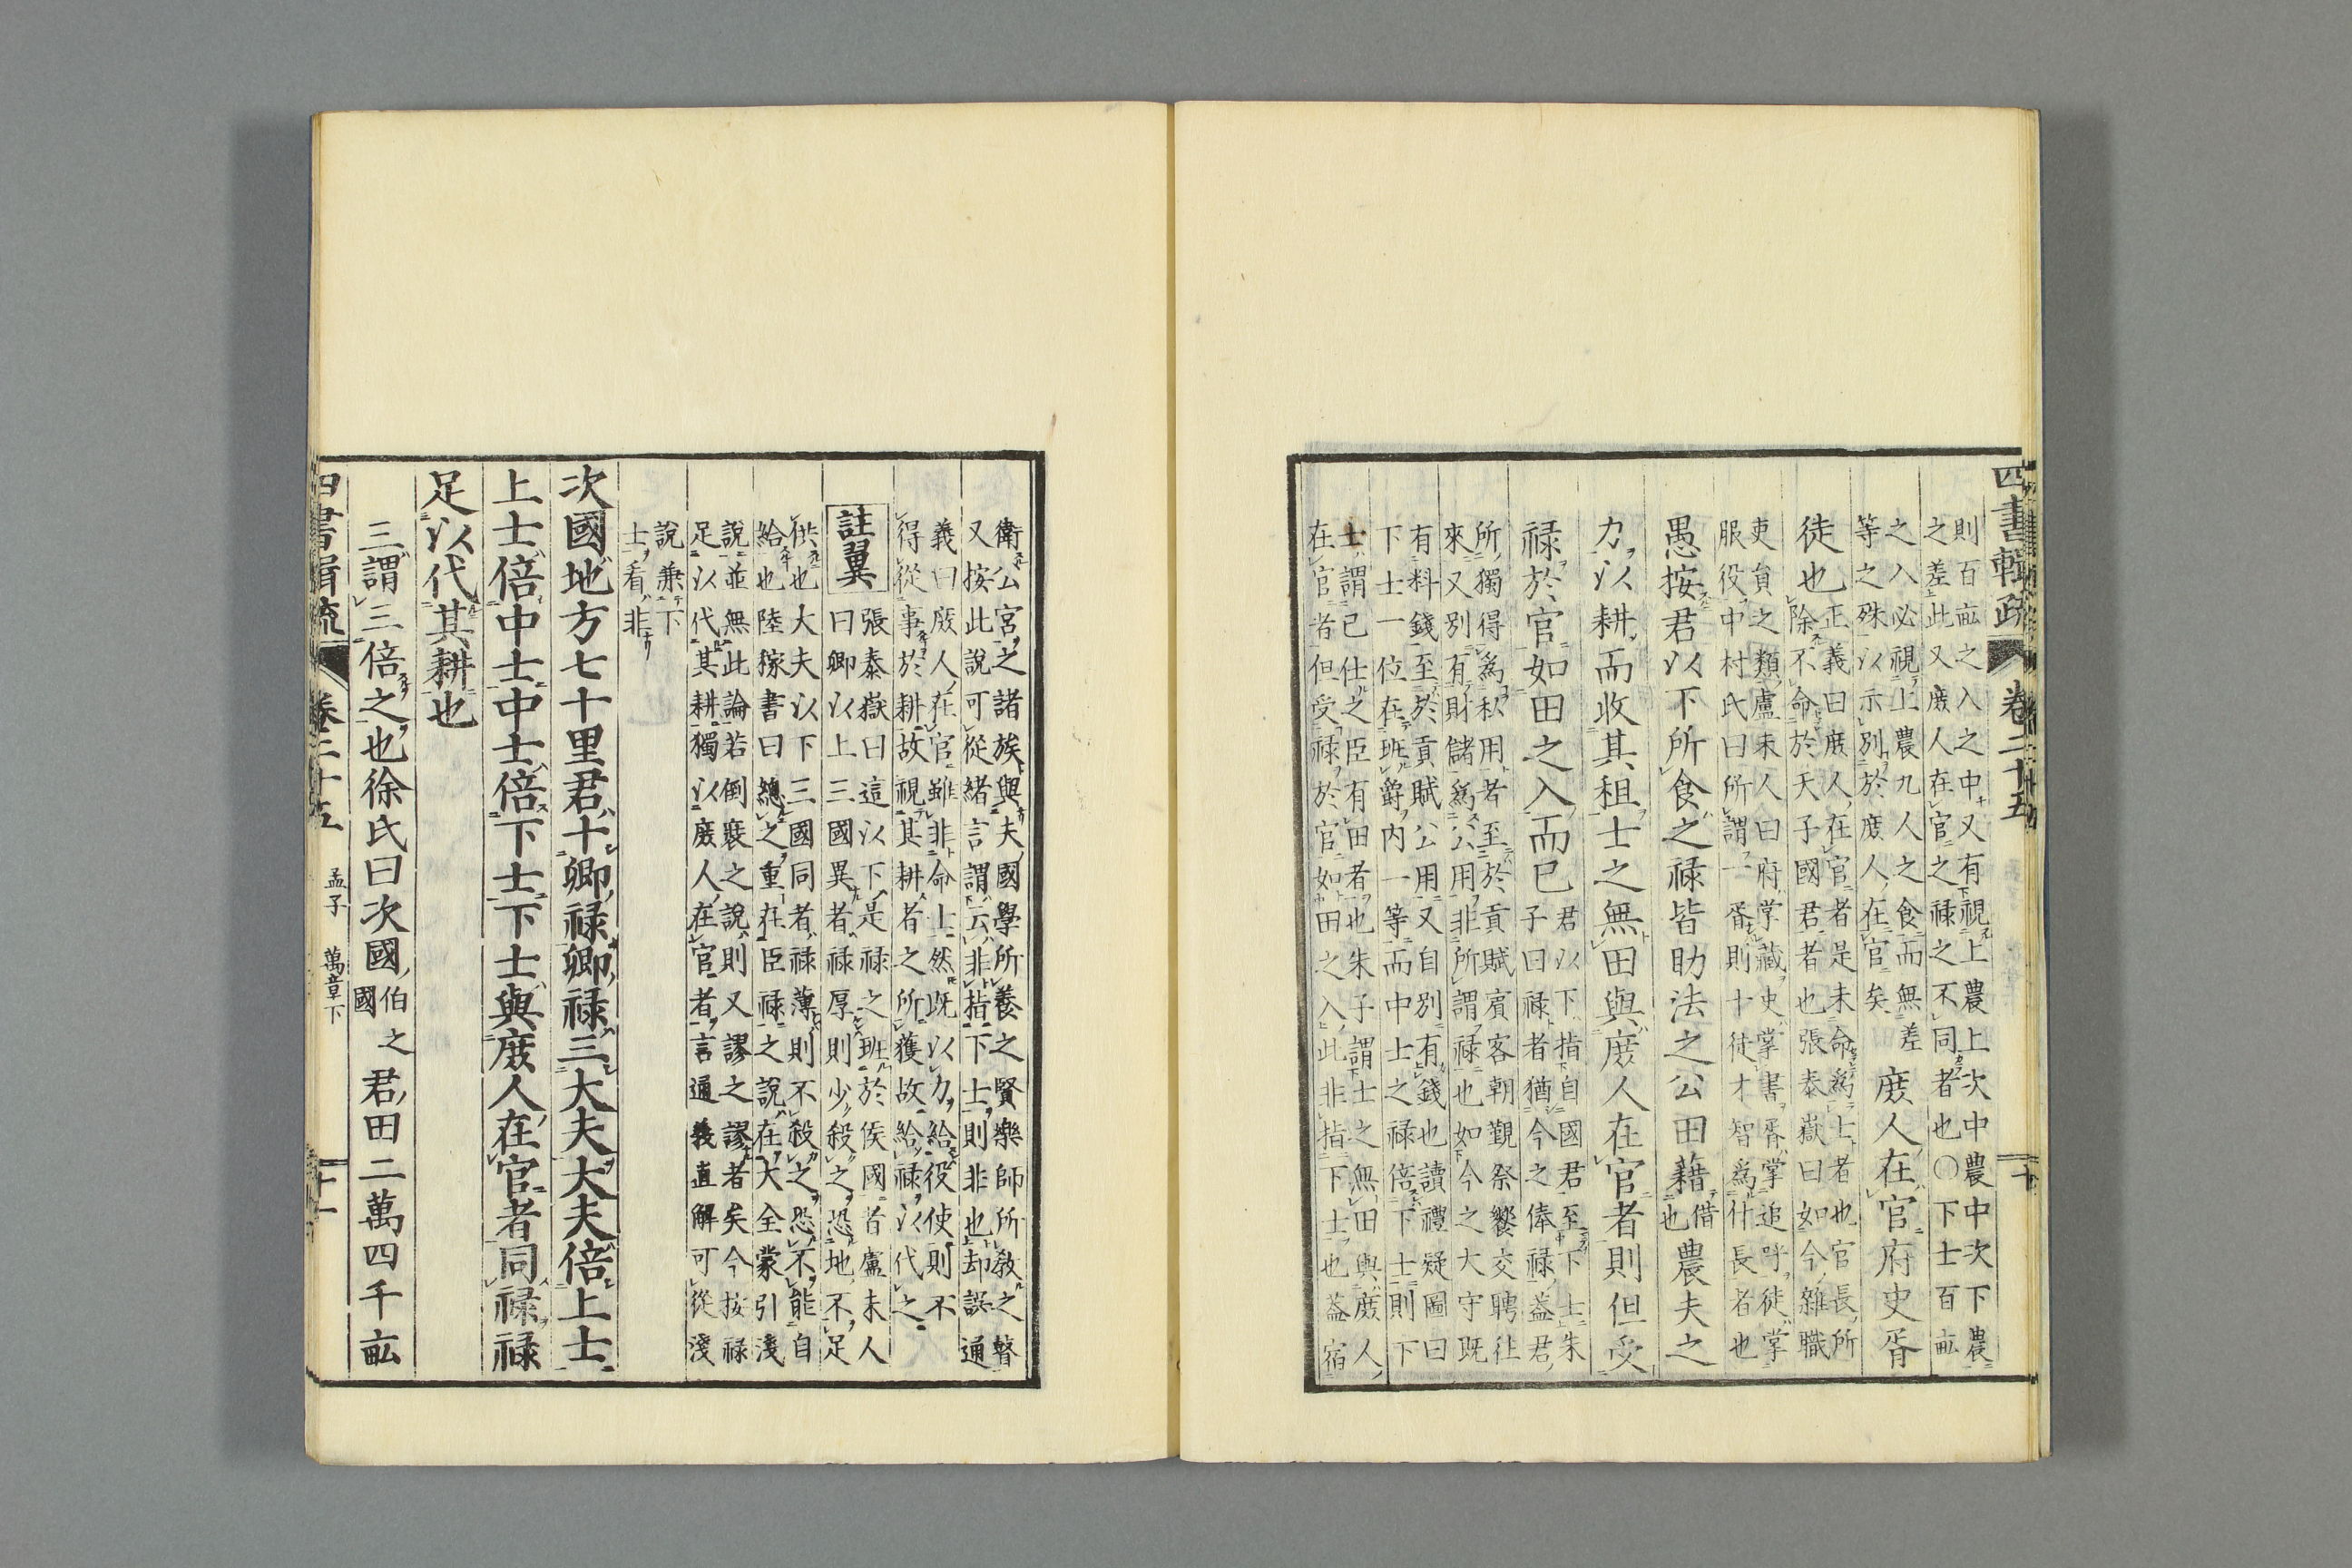 四書輯疏 卷二十五 十
則百畝之入之中又有視上農上次中農中次下農
之差此又庻人在官之禄之不同者也〇下士百畝
之入必視上農九人之食而無差
等之殊以示別於庻人在官矣
庻人在官府史胥
徒也
正義曰庻人在官者是未命爲士者也官長所
除不命於天子國君者也張泰嶽曰如今雜職
吏貟之類盧未人曰府掌藏史掌書胥掌追呼徒掌
服役中村氏曰所謂一胥則十徒才智爲什長者也
愚按君以下所食之禄皆助法之公田藉
借
也
農夫之
力以耕而收其租士之無田與庻人在官者則但受
禄於官如田之入而已
君以下指自國君至下士朱
子曰禄者猶今之俸禄葢君
所獨得爲私用者至於貢賦賓客朝覲祭饗交聘徃
來又別有財儲爲公用非所謂禄也如今之大守既
有料錢至於貢賦公用又自別有錢也讀禮疑圖曰
下士一位在班爵内一等而中士之禄倍下士則下
士謂已仕之臣有田者也朱子謂士之無田與庻人
在官者但受禄於官如田之入此非指下士也葢宿
衛公宮之諸族與夫國學所養之賢樂師所敎之瞽
又按此說可從緒言謂云非指下士則非也却誤通
義曰庻人在官雖非命士然既以力給役使則不
得從事於耕故視其耕者之所獲故給禄以代之
註翼
張泰嶽曰這以下是禄之班於侯國者盧未人
曰卿以上三國異者禄厚則少殺之恐地不足
供也大夫以下三國同者禄薄則不殺之恐不能自
給也陸稼書曰總之重在臣禄之說在大全蒙引淺
說並無此論若倒裝之說則又謬之謬者矣今按禄
足以代其耕獨以庻人在官者言通義直解可從淺
說兼下
士看非
次國地方七十里君十卿禄卿禄三大夫大夫倍上士
上士倍中士中士倍下士下士與庻人在官者同禄禄
足以代其耕也
三謂三倍之也徐氏曰次國
伯之
國
君田二萬四千畝
四書輯疏 卷二十五 孟子 萬章下 十一